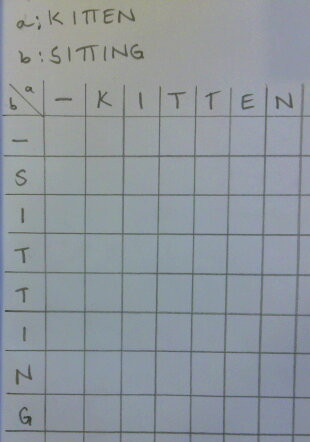 a: KITTEN
b: SITTING
b \ a - K I T T E N
-
S
I
T
T
I
N
G